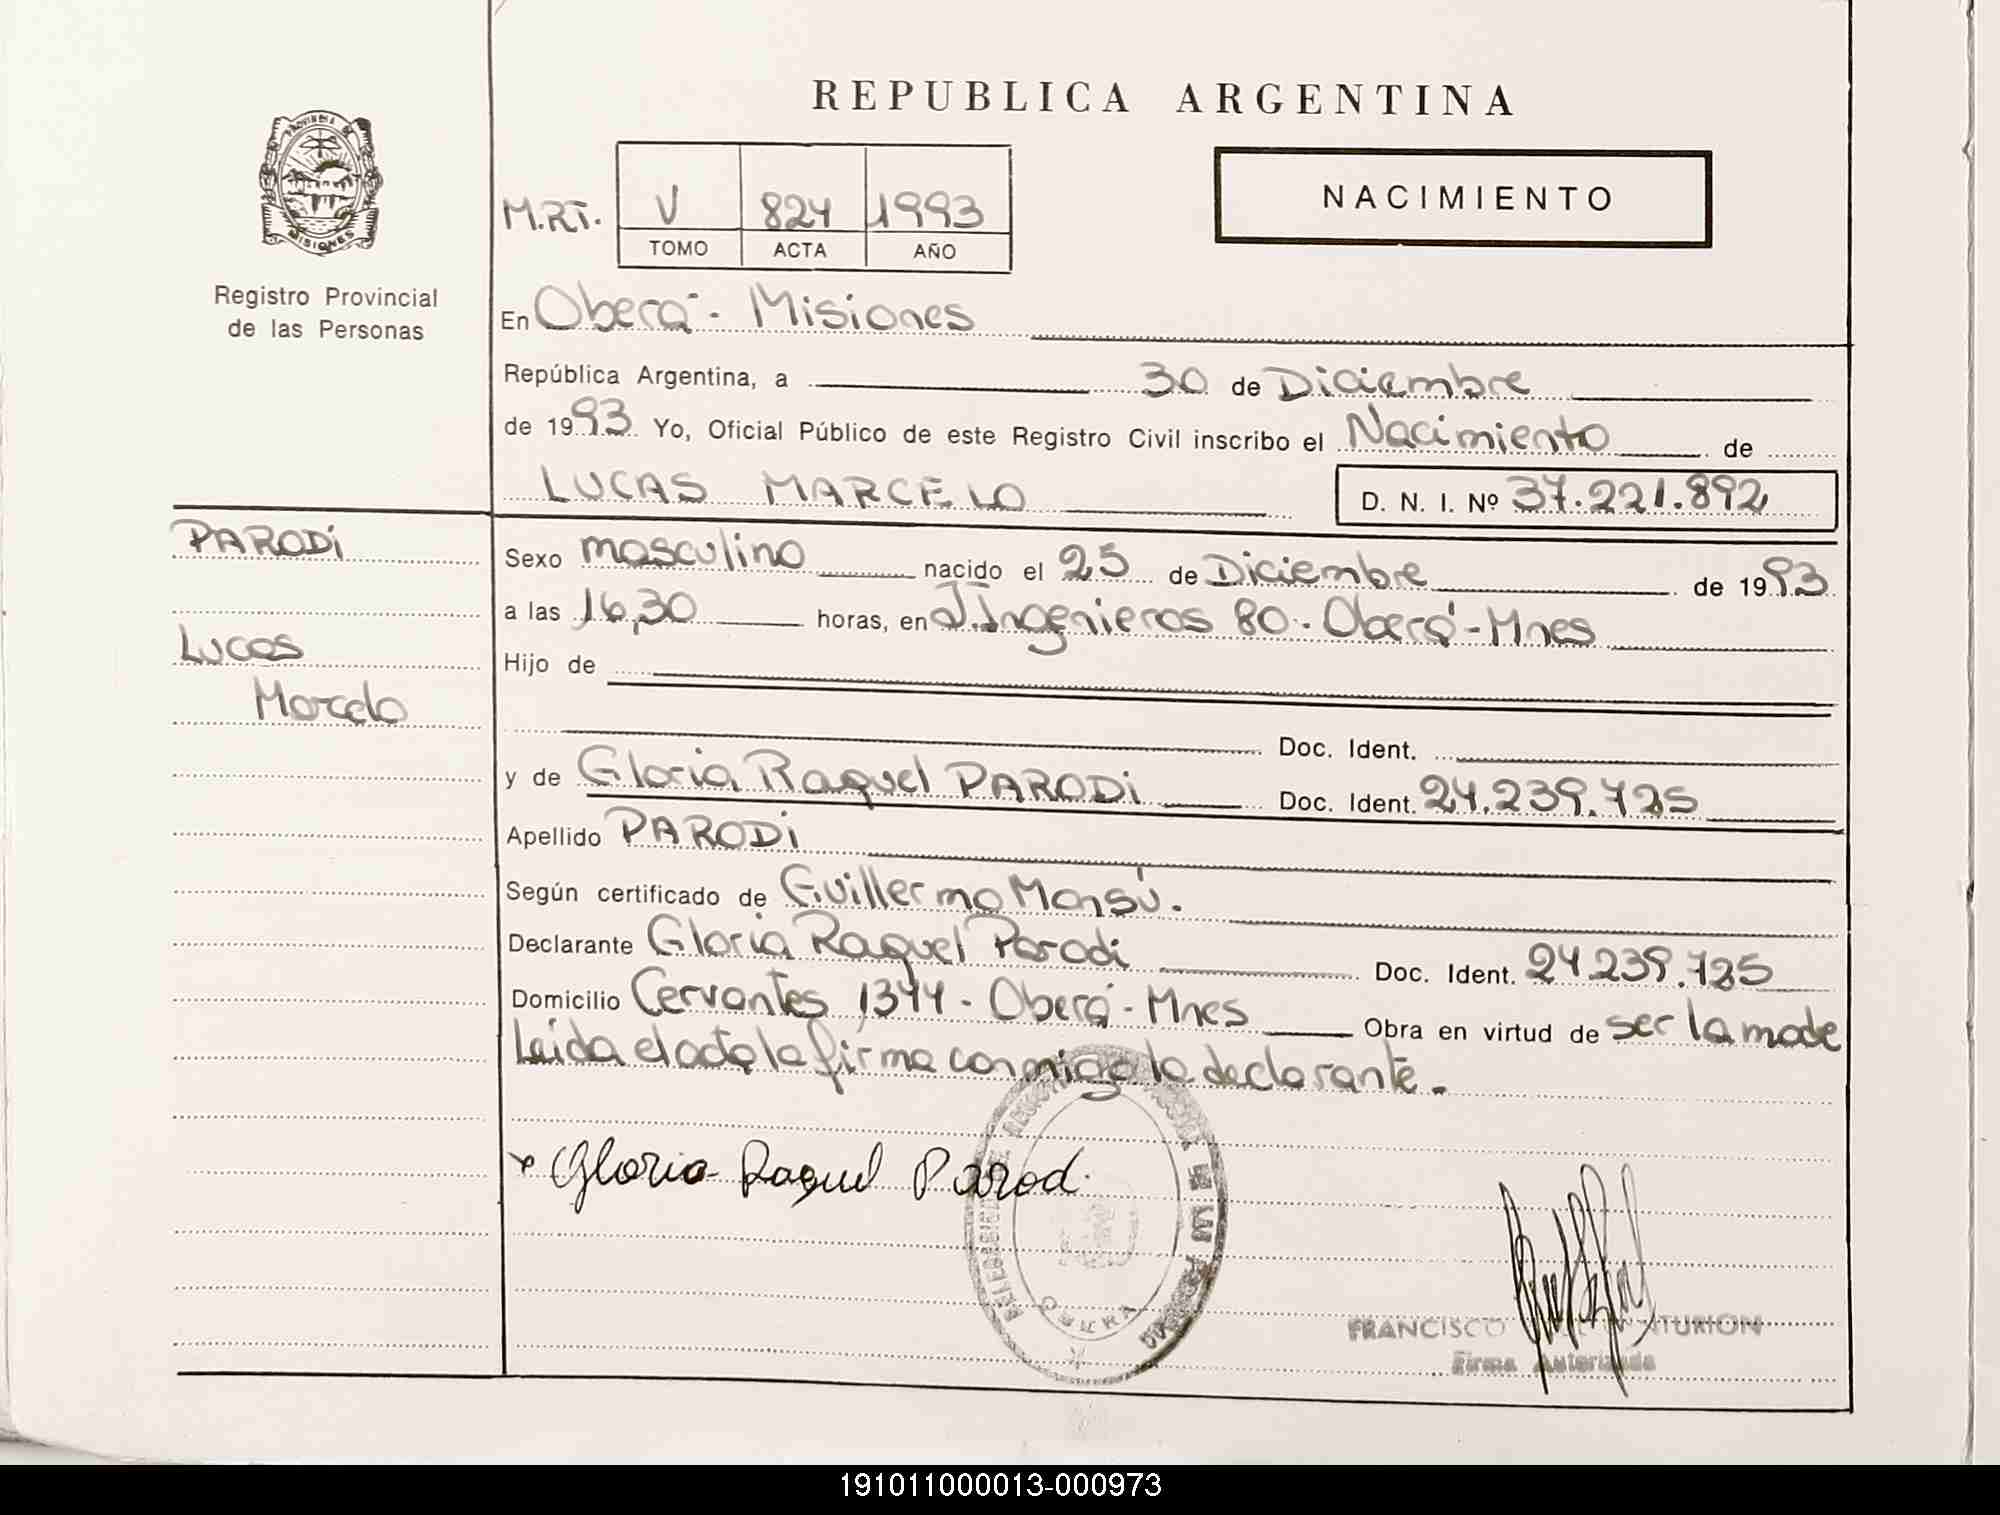 REPUBLICA ARGENTINA
PROVINCIA DE
MISIONES
Registro Provincial
de las Personas
NACIMIENTO
M.RT. V 824 1993
TOMO ACTA AÑO
En Oberá - Misiones
República Argentina, a 30 de Diciembre
de 1993 Yo, Oficial Público de este Registro Civil inscribo el Nacimiento de
LUCAS MARCELO D. N. I. Nº 37.221.892
PARODi
Lucas
Marcelo
Sexo masculino nacido el 25 de Diciembre de 1993
a las 16,30 horas, en J.Ingenieros 80 - Oberá - Mnes
Hijo de
Doc. Ident.
y de Gloria Raquel PARODi Doc. Ident. 24.239.725
Apellido PARODi
Según certificado de Guillermo
Declarante Gloria Raquel Parodi Doc. Ident. 24.239.725
Domicilio Cervantes 1344 - Oberá - Mnes Obra en virtud de ser la made
Leida el acta la firma conmigo la declarante.
Gloria Raquel Parodi
OBERA
FRANCISCO
Firma Autorizada
191011000013-000973